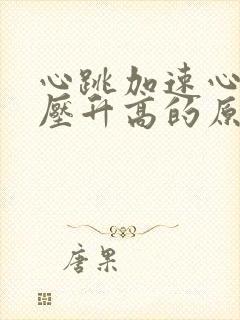 心跳加速心
壓升高的原
唐果